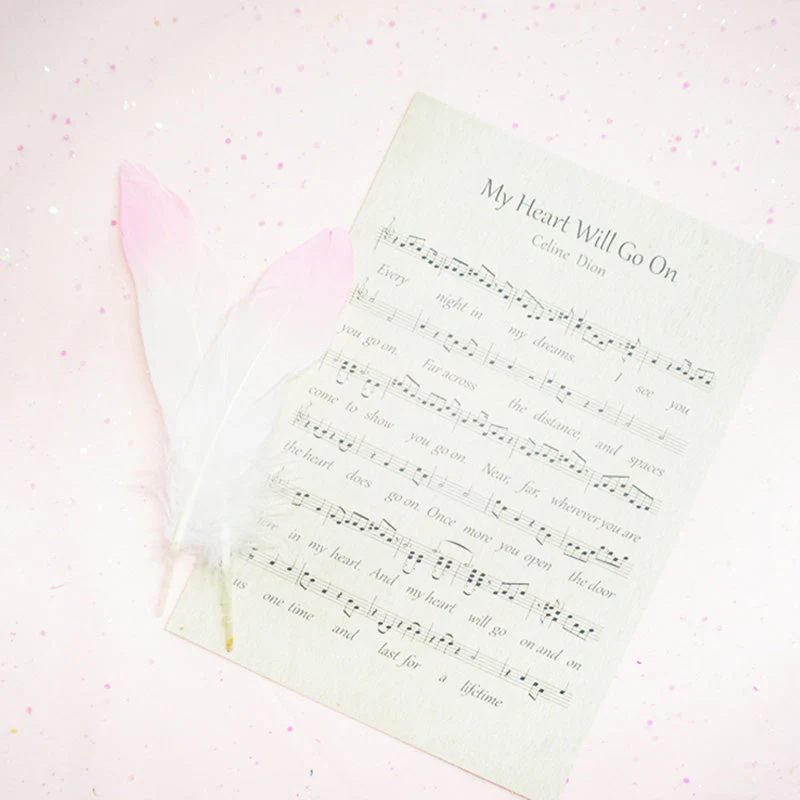 My Heart Will Go On
Celine Dion
Every night in my dreams. I see you
you go on. Far across the distance, and spaces
come to show you go on. Near, far, wherever you are
the heart does go on. Once more you open the door
in my heart. And my heart will go on and on
us one time and last for a lifetime